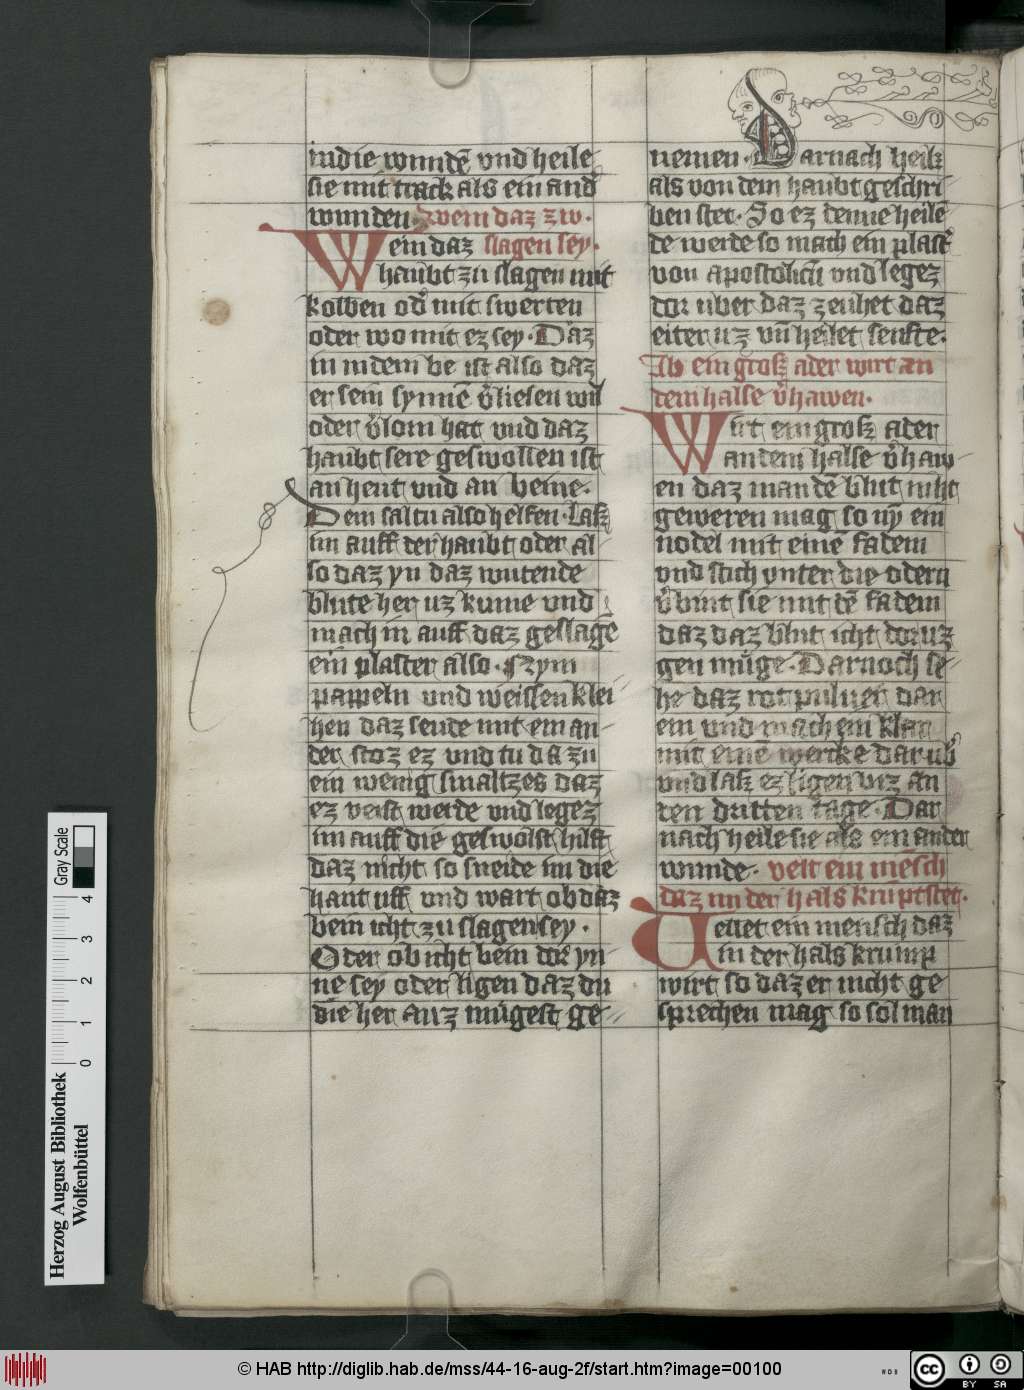 in die wundē vnd heile
sie mit track als ein and̾
wunden. Wem daz zw.
Wem daz slagen sey.
haubt zu slagen mit
kolben od̾ mit swerten
oder wo mit ez sey. Daz
in in dem be ist also daz
er sein synnē v̾liesen wil
oder v̾lorn hat vnd daz
haubt sere geswollen ist
an heut vnd an beine.
Dem saltu also helfen. Lasz
im auff der haubt oder al-
so daz yn daz wutende
blute her uz kume vnd
mach im auff daz geslage
ein plaster also. Nym
pappeln vnd weissen klei-
hen daz seude mit ein an-
der stoz ez vnd tu da zu
ein wenig smaltzes daz
ez veist werde vnd legez
im auff die geswolst hilft
daz nicht so sneide im die
haut uff vnd wart ob daz
bein icht zu slagen sey.
Oder ob icht bein dor yn-
ne sey oder ligen daz du
die her auz mugest ge-
nemen. Darnach heilz
als von dem haubt geschri-
ben stet. So ez denne heilē
de werde so mach ein plast̾
von apostolicū vnd legez
dor vber daz zeuhet daz
eiter uz vn̄ heilet senfte.
Ab ein grosz ader wirt an
dem halse v̾hawen.
Wirt ein grosz ader
an dem halse v̾haw-
en daz man dē blut niht
geweren mag so nȳ ein
nodel mit einē fadem
vnd stich vnter die odern
v̾bint sie mit dē fadem
daz daz blut icht dor uz
gen muge. Darnoch se-
he daz rot puluer dar
ein vnd mach ein klar
mit einē wercke dar ub̾
vnd lasz ez ligen vnz an
den dritten tage. Dar
nach heile sie als ein ander
wunde. velt ein mēsch
daz im der hals krumpt stet.
Uellet ein mensch daz
im der hals krump
wirt so daz er nicht ge
sprechen mag so sol man
Herzog August Bibliothek
Wolfenbüttel
0 1 2 3 4
Gray Scale
© HAB http://diglib.hab.de/mss/44-16-aug-2f/start.htm?image=00100
cc BY SA